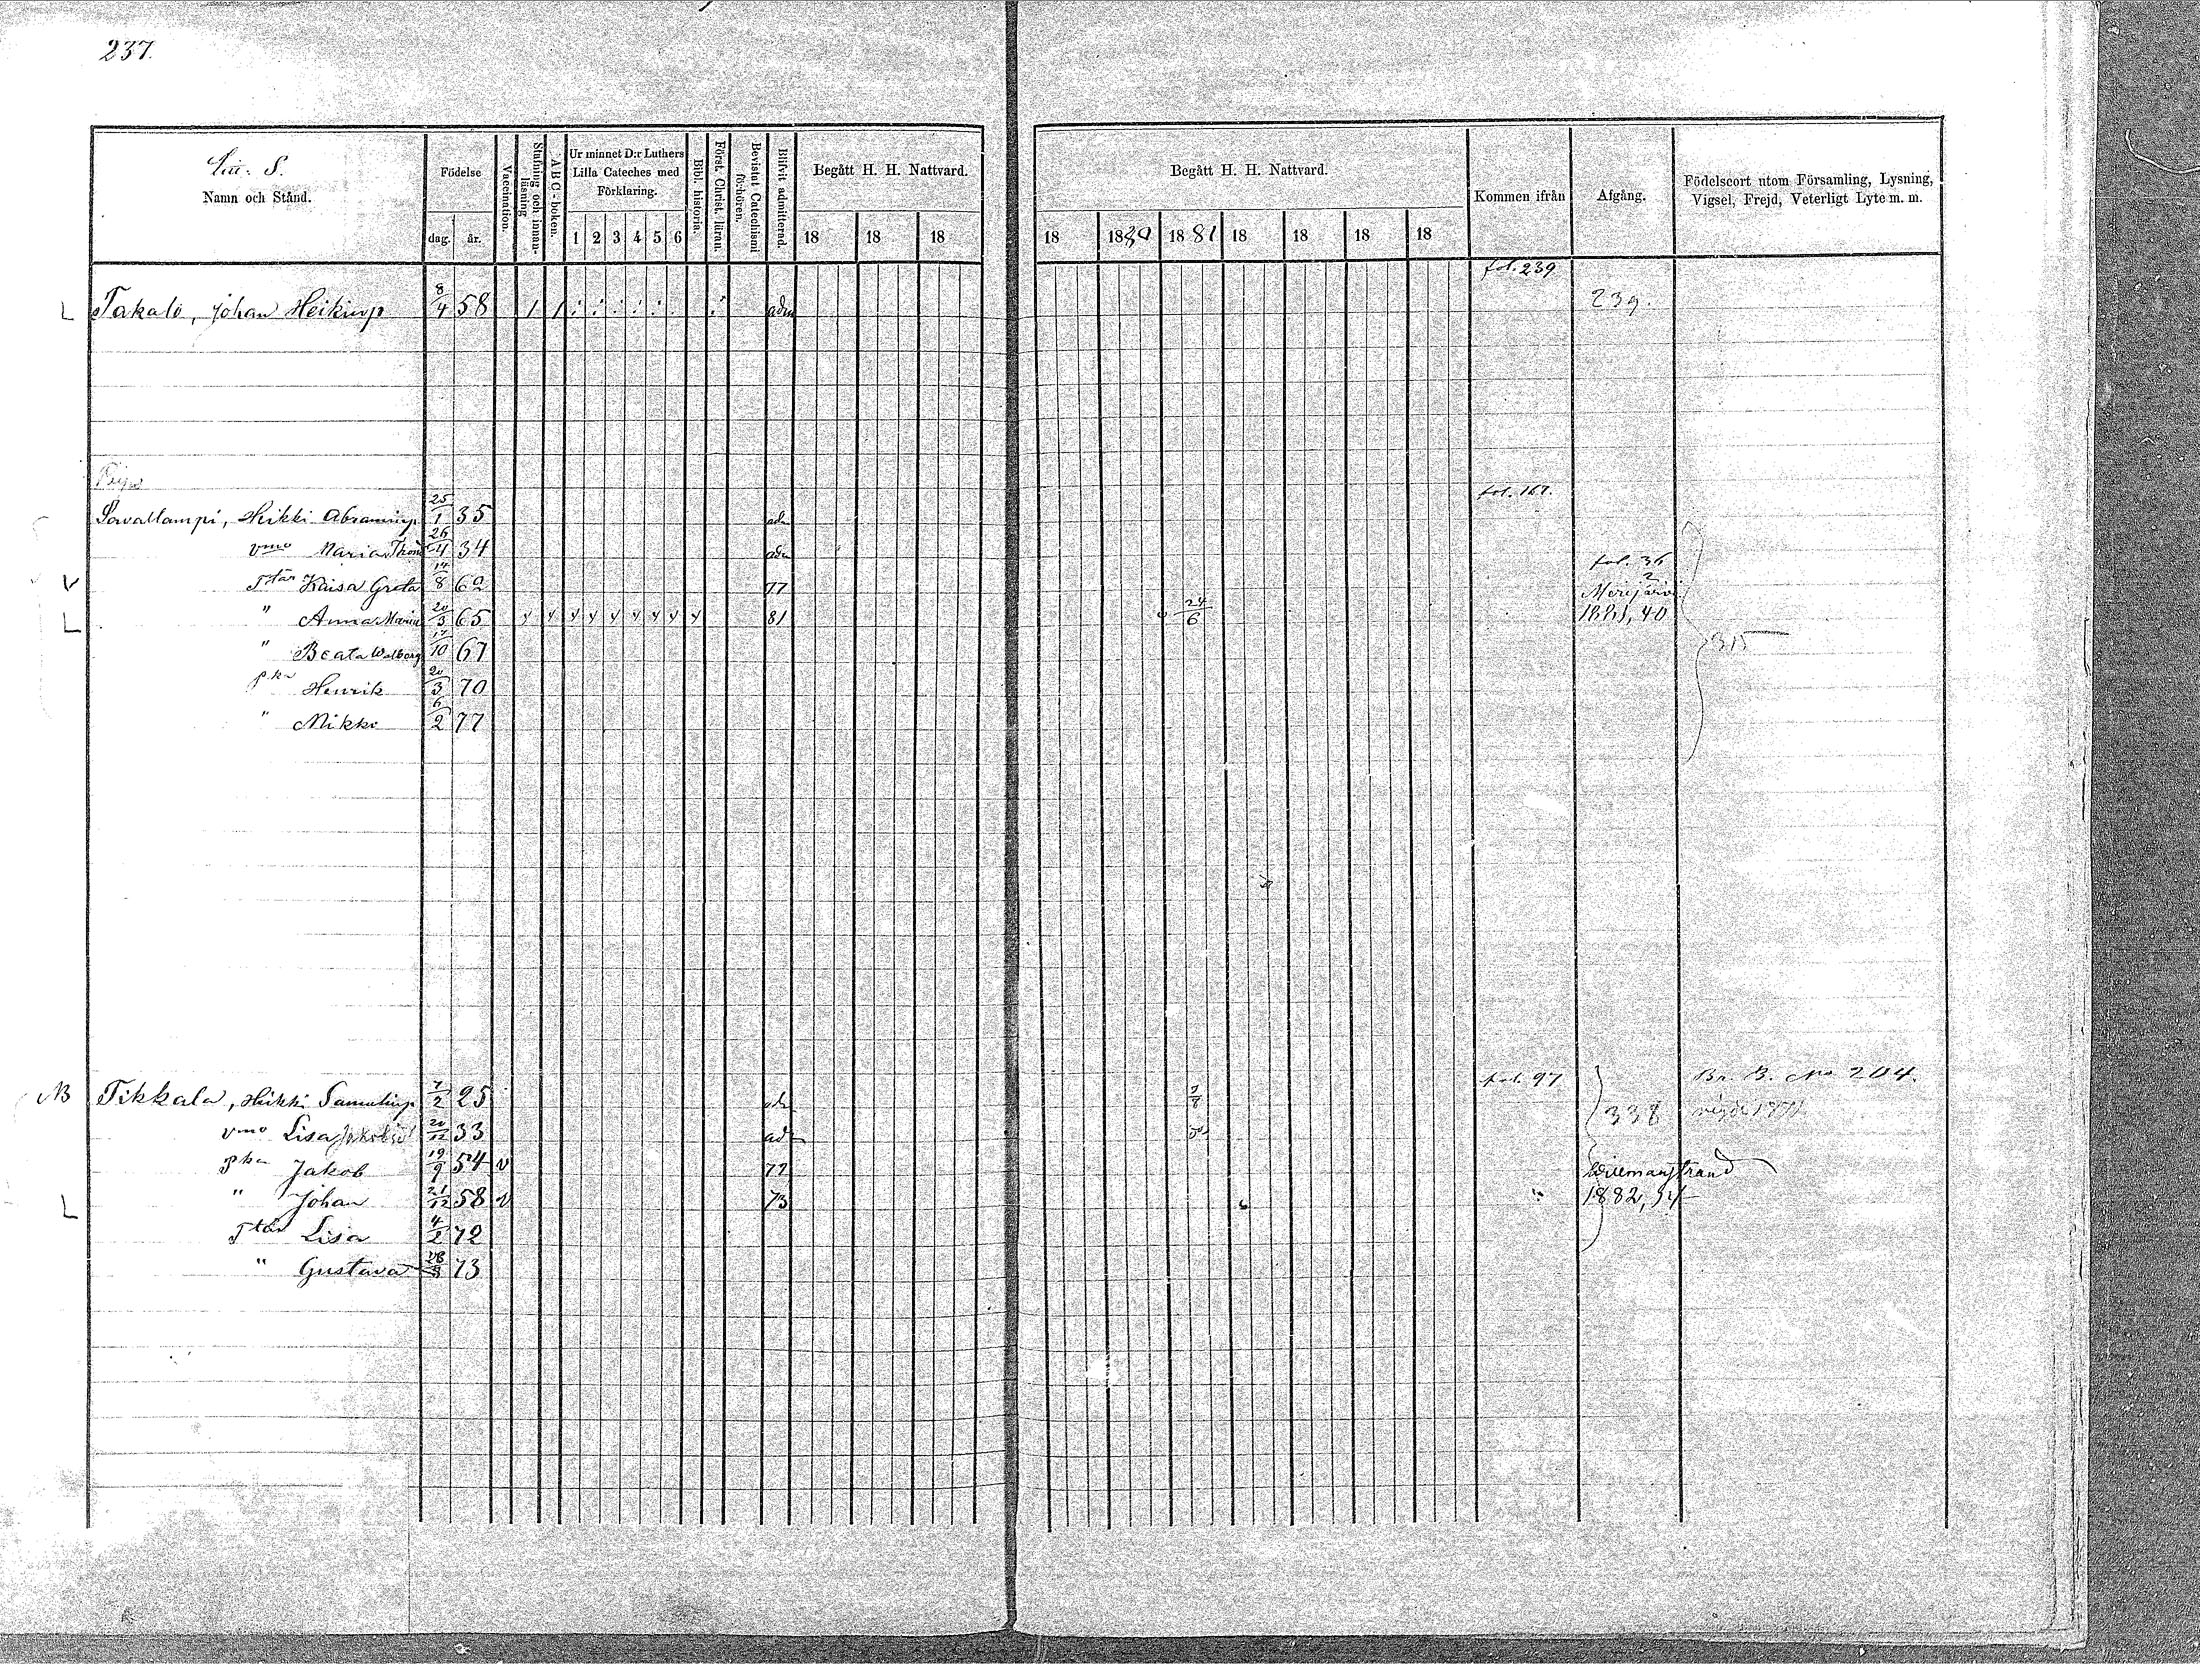 237.
Litt. S.
Namn och Stånd.
Födelse
dag. år.
Vaccination.
Stafning och innanläsning
A B C-boken.
Ur minnet D:r Luthers Lilla Cateches med Förklaring.
1 2 3 4 5 6
Bibl. historia.
Först. Christ. läran.
Bevistat Catechismi förhören.
Blifvit admitterad.
Begått H. H. Nattvard.
18 18 18
Begått H. H. Nattvard.
18 1880 1881 18 18 18 18
Kommen ifrån
Afgång.
Födelseort utom Församling, Lysning, Vigsel, Frejd, Veterligt Lyte m. m.
fol. 239
L Takalo, Johan Heikinp 8/4 58 adm 239.
fol. 167.
Savallampi, Heikki Abraminp 25/1 35 adm
vmo Maria Thom 26/4 34 adm
fol. 36
V Ttär Kaisa Greta 14/8 62 77 Merijärvi
L " Anna Maria 20/3 65 y y y y y y y y y 81 24/6 1881, 40
" Beata Walborg 17/10 67 315
pkr Henrik 20/3 70
" Mikko 6/2 77
fol. 97 Br. B. No 204.
NB Tikkala, Heikki Samulinp 7/2 25 adm 7/8 338
vmo Lisa Jakobsd 20/12 33 adm
pkr Jakob 19/9 54 v 72 Willmanstrand
L " Johan 21/12 58 v 73 1882, 54
Ttär Lisa 4/2 72
" Gustava 28/3 73